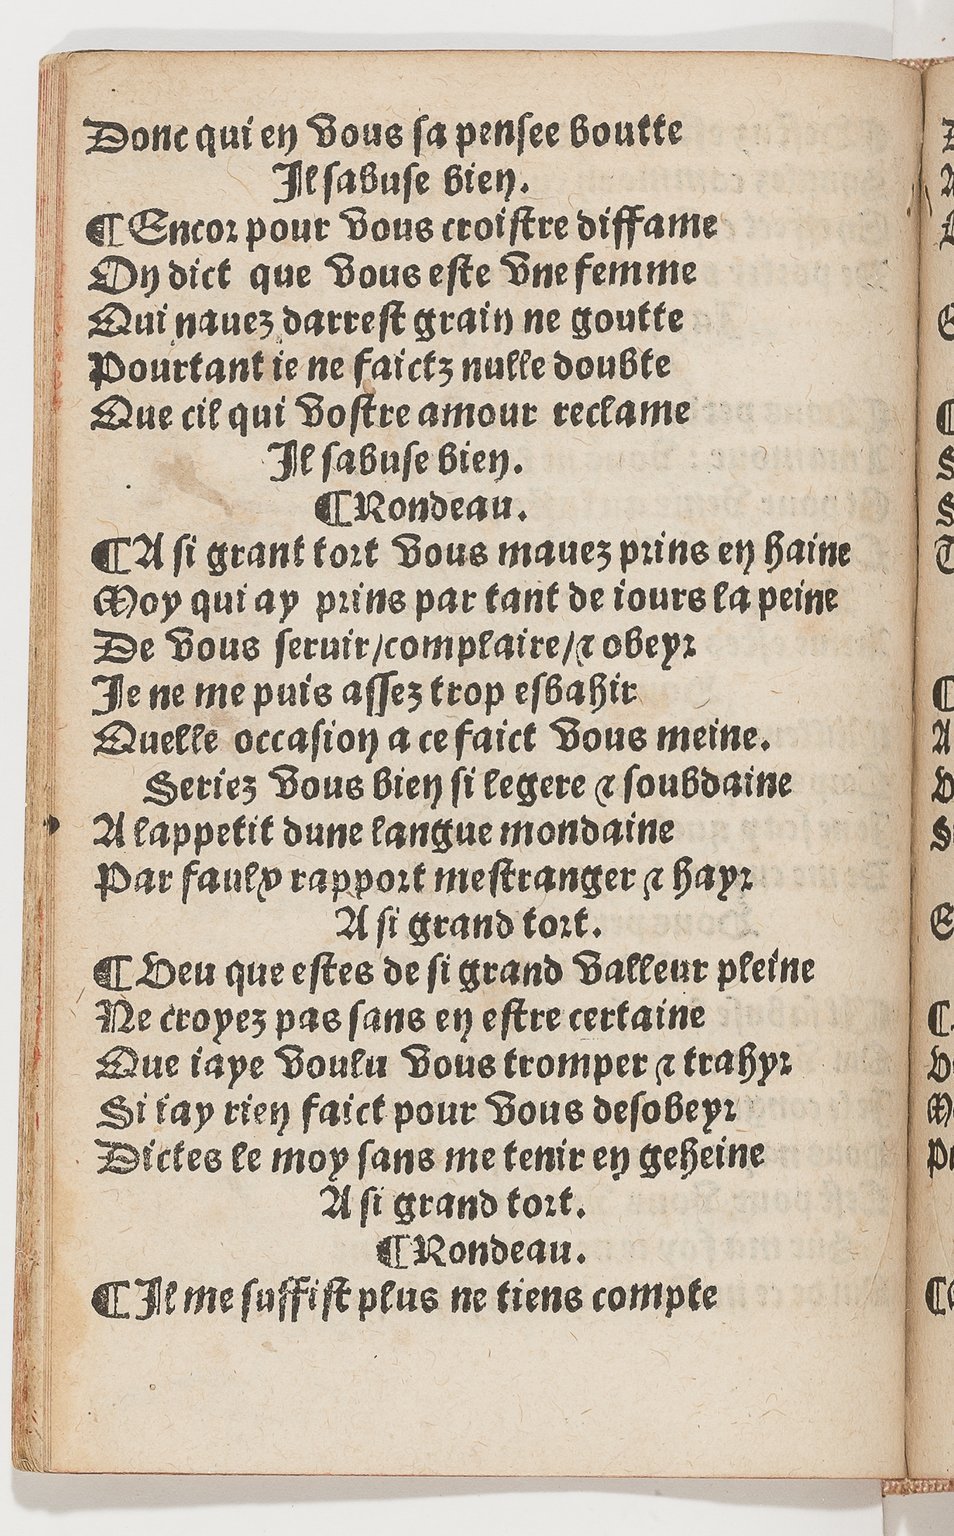 Donc qui en vous sa pensee boutte
Il sabuse bien.
¶Encor pour vous croistre diffame
On dict que vous este vne femme
Qui nauez darrest grain ne goutte
Pourtant ie ne faictz nulle doubte
Que cil qui vostre amour reclame
Il sabuse bien.
¶Rondeau.
¶A si grant tort vous mauez prins en haine
Moy qui ay prins par tant de iours la peine
De vous seruir/complaire/⁊ obeyr
Je ne me puis assez trop esbahir
Quelle occasion a ce faict vous meine.
Seriez vous bien si legere ⁊ soubdaine
A lappetit dune langue mondaine
Par faulx rapport mestranger ⁊ hayr
A si grand tort.
¶Veu que estes de si grand valleur pleine
Ne croyez pas sans en estre certaine
Que iaye voulu vous tromper ⁊ trahyr
Si iay rien faict pour vous desobeyr
Dictes le moy sans me tenir en geheine
A si grand tort.
¶Rondeau.
¶Il me suffist plus ne tiens compte